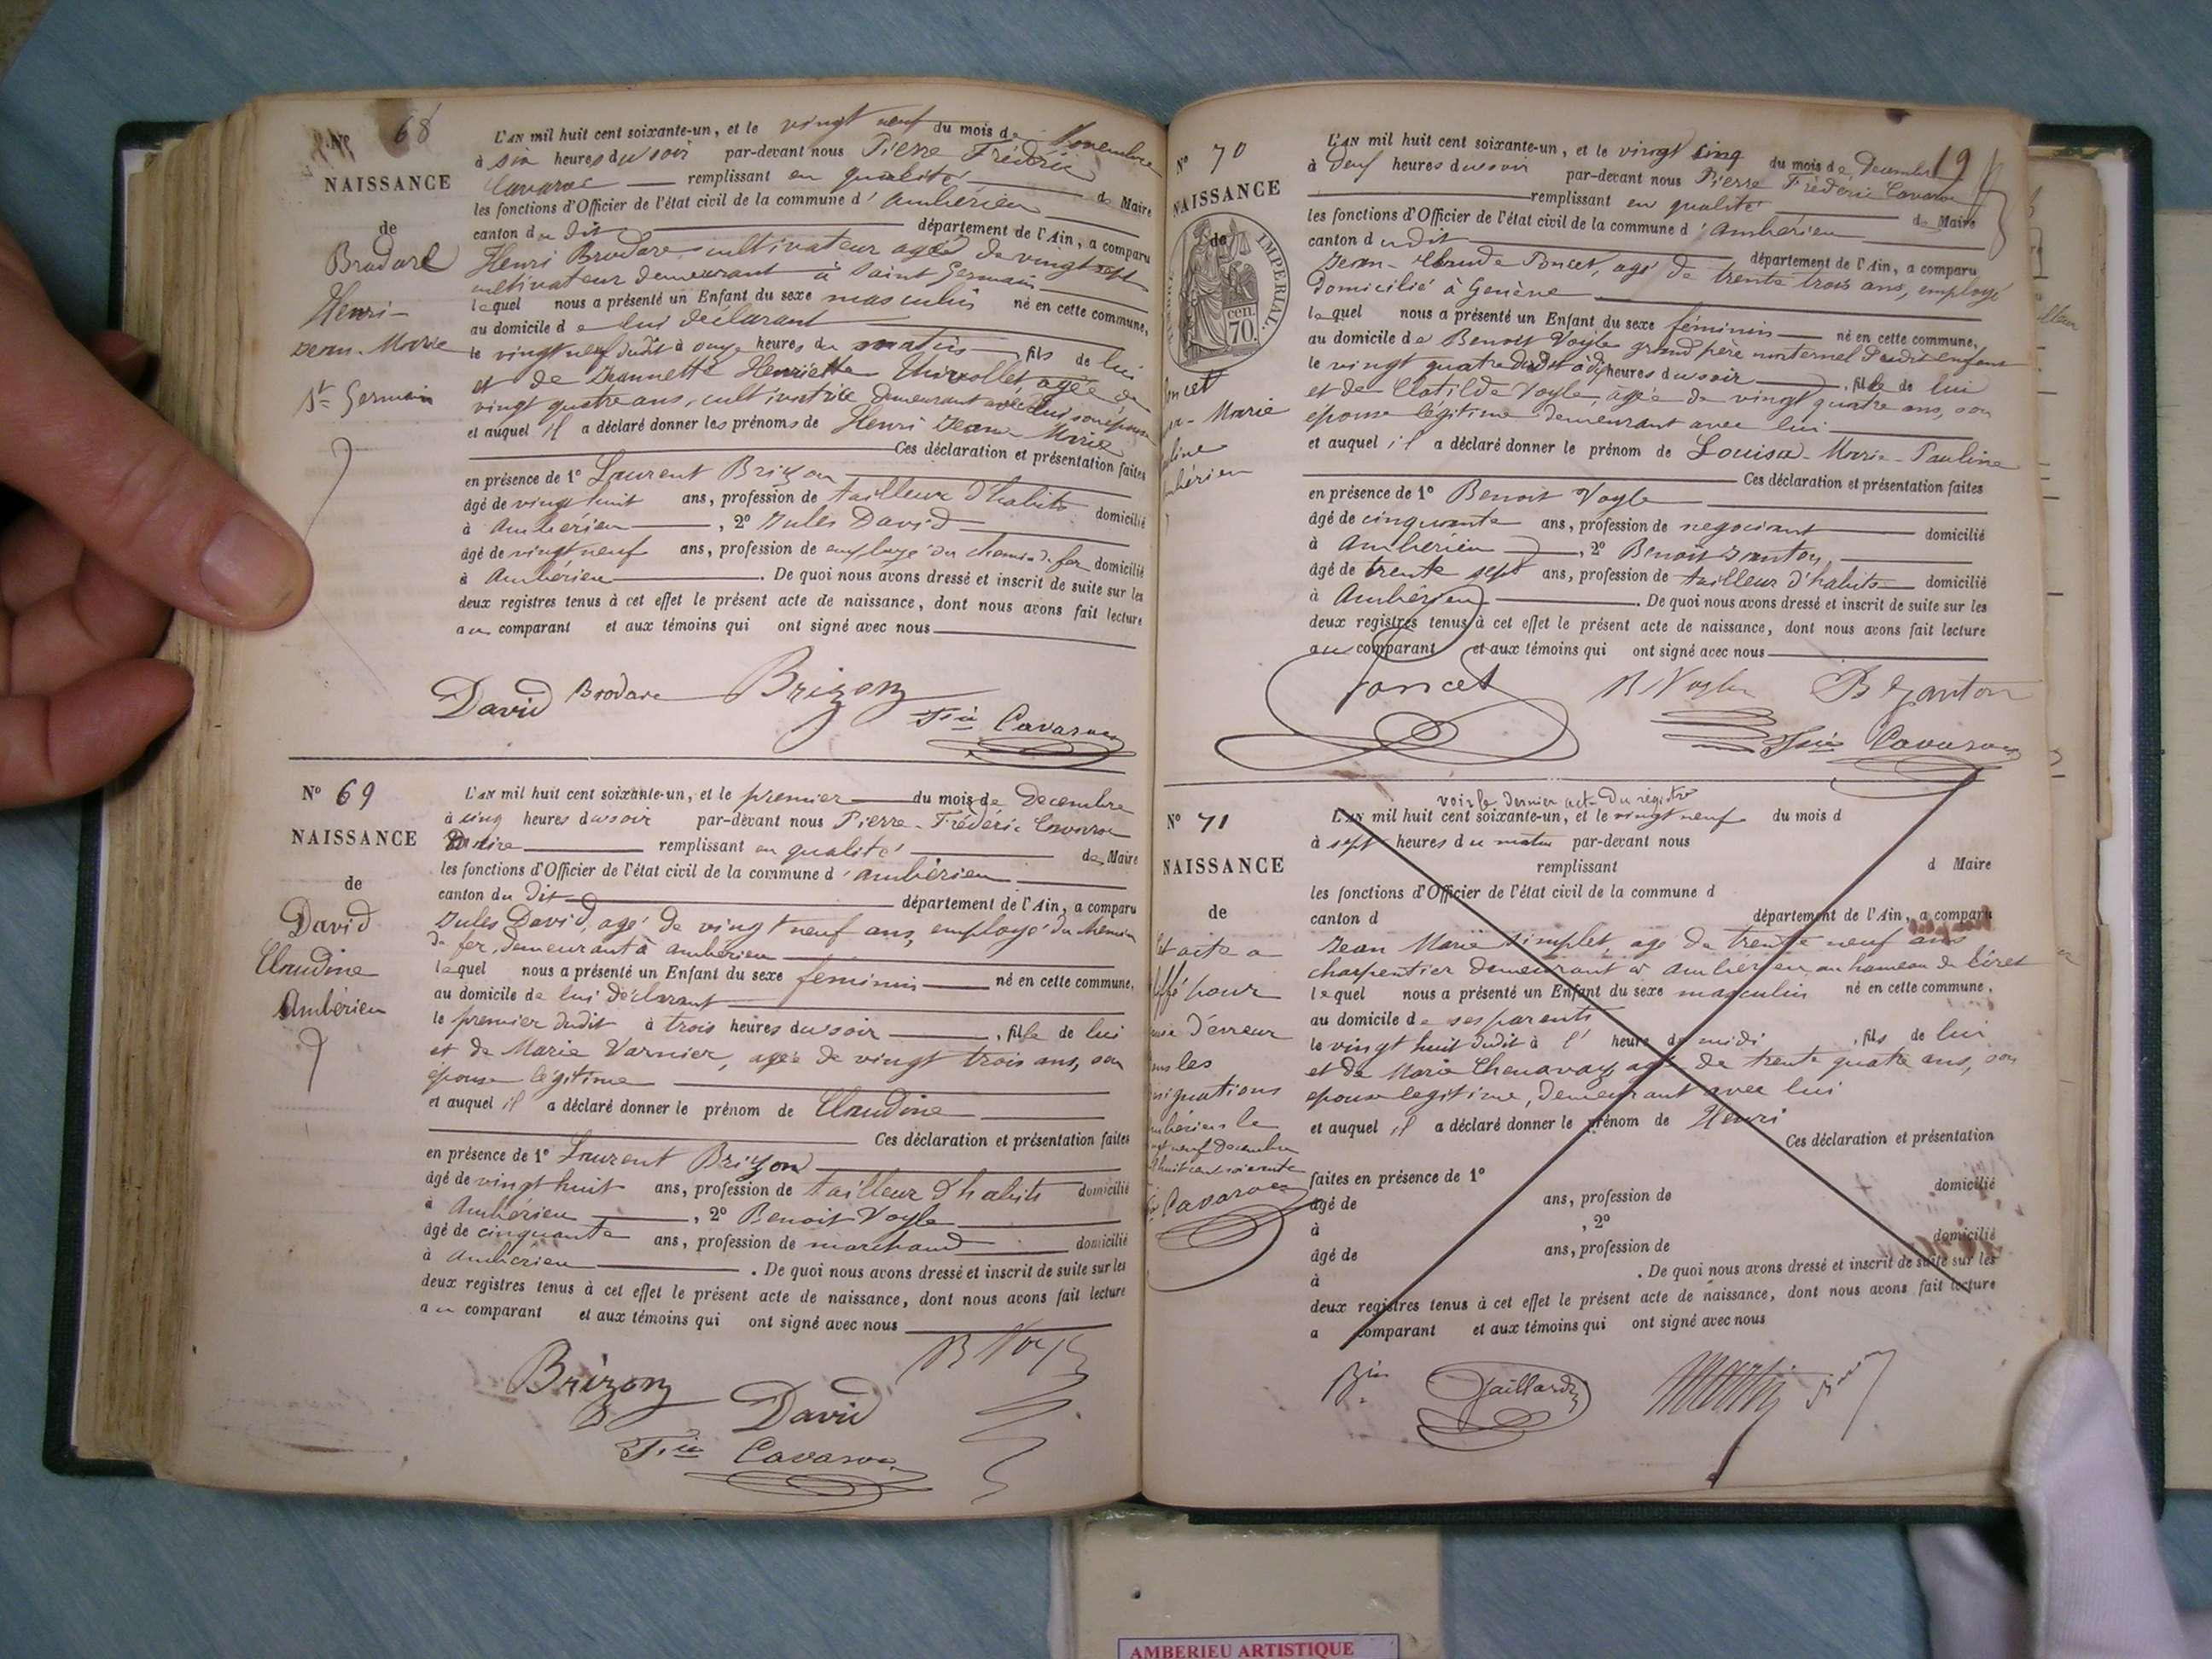 N° 68
NAISSANCE
de
Brodard
Henri-
Jean-Marie
St Germain
L'AN mil huit cent soixante-un, et le vingt neuf du mois de Novembre
à six heures du soir par-devant nous Pierre Frédéric
Cavaroc remplissant en qualité de Maire
les fonctions d'Officier de l'état civil de la commune d'Ambérieu
canton du dit département de l'Ain, a comparu
Henri Brodard cultivateur agé de vingt sept
cultivateur demeurant à Saint Germain
lequel nous a présenté un Enfant du sexe masculin né en cette commune,
au domicile de lui déclarant
le vingt neuf dudit à onze heures du matin fils de lui
et de Jeannette Henriette agée de
vingt quatre ans, cultivatrice demeurant avec lui son épouse
et auquel il a déclaré donner les prénoms de Henri Jean Marie
Ces déclaration et présentation faites
en présence de 1° Laurent Brizon
âgé de vingt huit ans, profession de tailleur d'habits domicilié
à Ambérieu, 2° Jules David
âgé de vingt neuf ans, profession de employé du chemin de fer domicilié
à Ambérieu. De quoi nous avons dressé et inscrit de suite sur les
deux registres tenus à cet effet le présent acte de naissance, dont nous avons fait lecture
au comparant et aux témoins qui ont signé avec nous
David Brodard Brizon
Fric Cavaroc
N° 69
NAISSANCE
de
David
Claudine
Ambérieu
L'AN mil huit cent soixante-un, et le premier du mois de Decembre
à cinq heures du soir par-devant nous Pierre-Frédéric Cavaroc
Maire remplissant en qualité de Maire
les fonctions d'Officier de l'état civil de la commune d'Ambérieu
canton du Dit département de l'Ain, a comparu
Jules David, agé de vingt neuf ans, employé du chemin
de fer, demeurant à Ambérieu
lequel nous a présenté un Enfant du sexe feminin né en cette commune,
au domicile de lui déclarant
le premier dudit à trois heures du soir, fille de lui
et de Marie Varnier, agée de vingt trois ans, son
epouse légitime
et auquel il a déclaré donner le prénom de Claudine
Ces déclaration et présentation faites
en présence de 1° Laurent Brizon
âgé de vingt huit ans, profession de tailleur d'habits domicilié
à Ambérieu, 2° Benoit Vogle
âgé de cinquante ans, profession de marchand domicilié
à Ambérieu. De quoi nous avons dressé et inscrit de suite sur les
deux registres tenus à cet effet le présent acte de naissance, dont nous avons fait lecture
au comparant et aux témoins qui ont signé avec nous
Brizon David B Vogle
Fric Cavaroc
19
N° 70
NAISSANCE
de
IMPERIAL
70 cen.
oncet
Marie
uline
bérieu
L'AN mil huit cent soixante-un, et le vingt cinq du mois de Decembre
à deux heures du soir par-devant nous Pierre Frédéric Cavaroc
remplissant en qualité de Maire
les fonctions d'Officier de l'état civil de la commune d'Ambérieu
canton dudit département de l'Ain, a comparu
Jean-Claude Poncet, agé de trente trois ans, employé
domicilié à Genève
lequel nous a présenté un Enfant du sexe féminin né en cette commune,
au domicile de Benoit Vogle grand père maternel dudit enfant
le vingt quatre dudit à dix heures du soir, fille de lui
et de Clotilde Vogle, agée de vingt quatre ans, son
épouse légitime demeurant avec lui
et auquel il a déclaré donner le prénom de Louisa-Marie-Pauline
Ces déclaration et présentation faites
en présence de 1° Benoit Vogle
âgé de cinquante ans, profession de negociant domicilié
à Ambérieu, 2° Benoit Janton
âgé de trente sept ans, profession de tailleur d'habits domicilié
à Ambérieu. De quoi nous avons dressé et inscrit de suite sur les
deux registres tenus à cet effet le présent acte de naissance, dont nous avons fait lecture
au comparant et aux témoins qui ont signé avec nous
Poncet B Vogle B Janton
Fric Cavaroc
N° 71
NAISSANCE
de
et acte a
iffé pour
use d'erreur
ans les
signations
mbérieu le
vingt neuf decembre
huit cent soixante
Cavaroc
voir le dernier acte du registre
L'AN mil huit cent soixante-un, et le vingt neuf du mois d
à sept heures du matin par-devant nous
remplissant d Maire
les fonctions d'Officier de l'état civil de la commune d
canton d département de l'Ain, a comparu
Jean Marie Simplet, agé de trente neuf ans
charpentier demeurant à Ambérieu, au hameau de
lequel nous a présenté un Enfant du sexe masculin né en cette commune,
au domicile de ses parents
le vingt huit dudit à l' heure de midi, fils de lui
et de Marie Chenavaz agée de trente quatre ans, son
epouse legitime, demeurant avec lui
et auquel il a déclaré donner le prénom de Henri
Ces déclaration et présentation
faites en présence de 1°
âgé de ans, profession de domicilié
à , 2°
âgé de ans, profession de domicilié
à . De quoi nous avons dressé et inscrit de suite sur les
deux registres tenus à cet effet le présent acte de naissance, dont nous avons fait lecture
a comparant et aux témoins qui ont signé avec nous
Gaillard Martin
AMBERIEU ARTISTIQUE